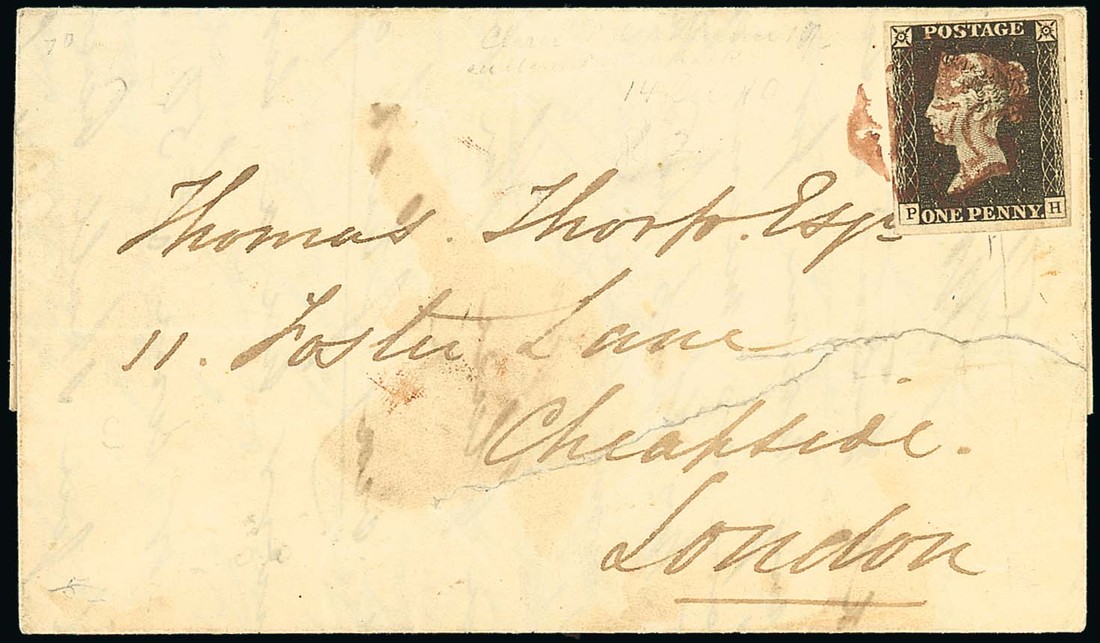 POSTAGE
P ONE PENNY H
Thomas. Thorp. Esqr
11. Foster Lane
Cheapside.
London